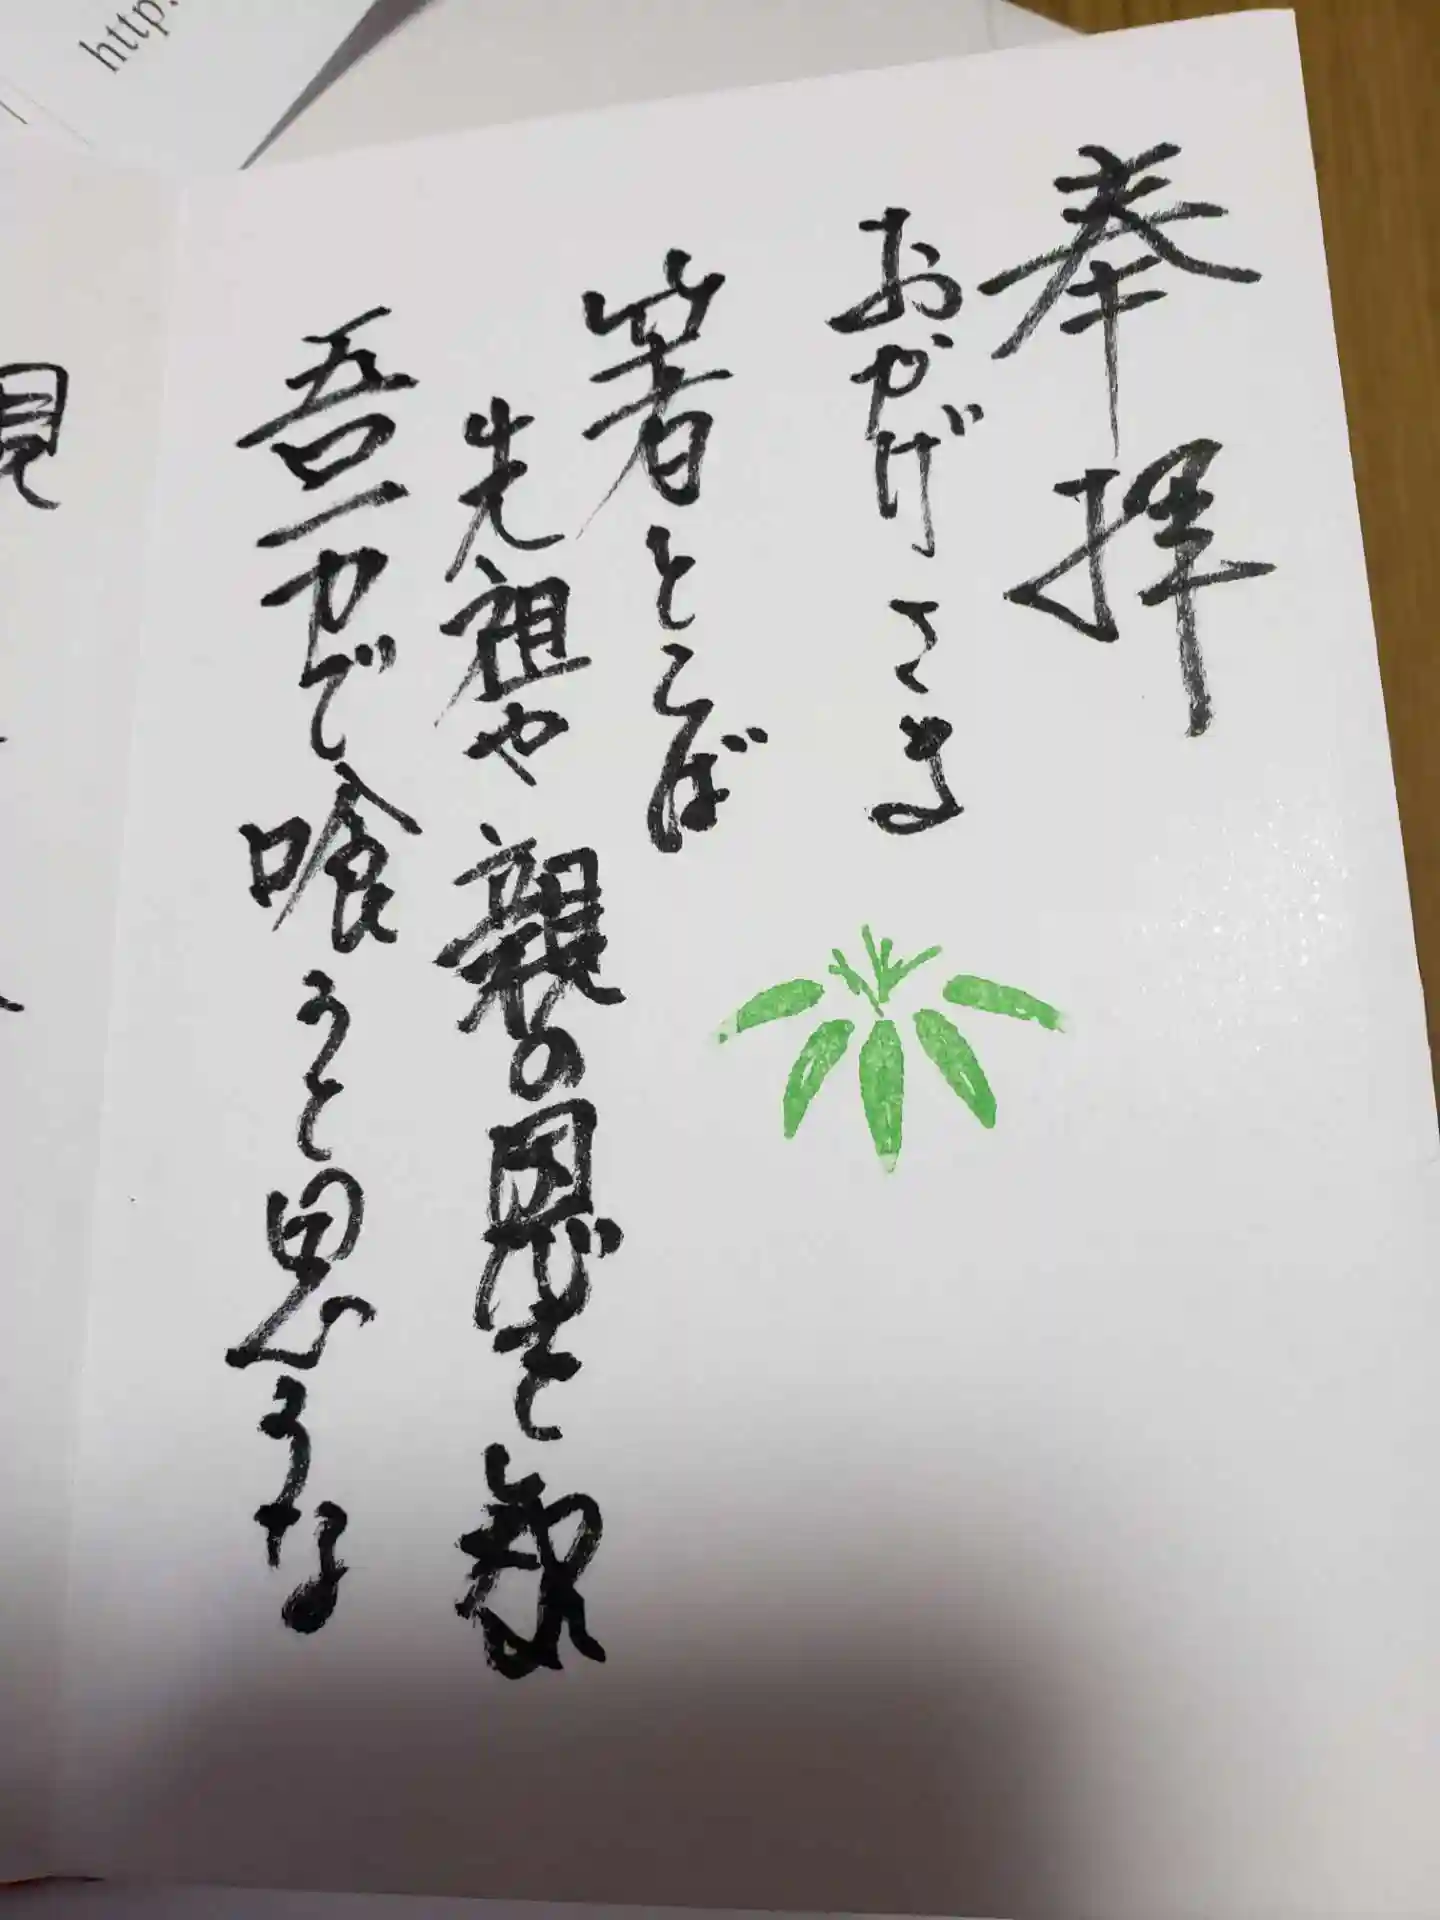 http.
奉拝
おかげさま
箸とらば
先祖や親の恩を知れ
吾一力で喰うと思うな